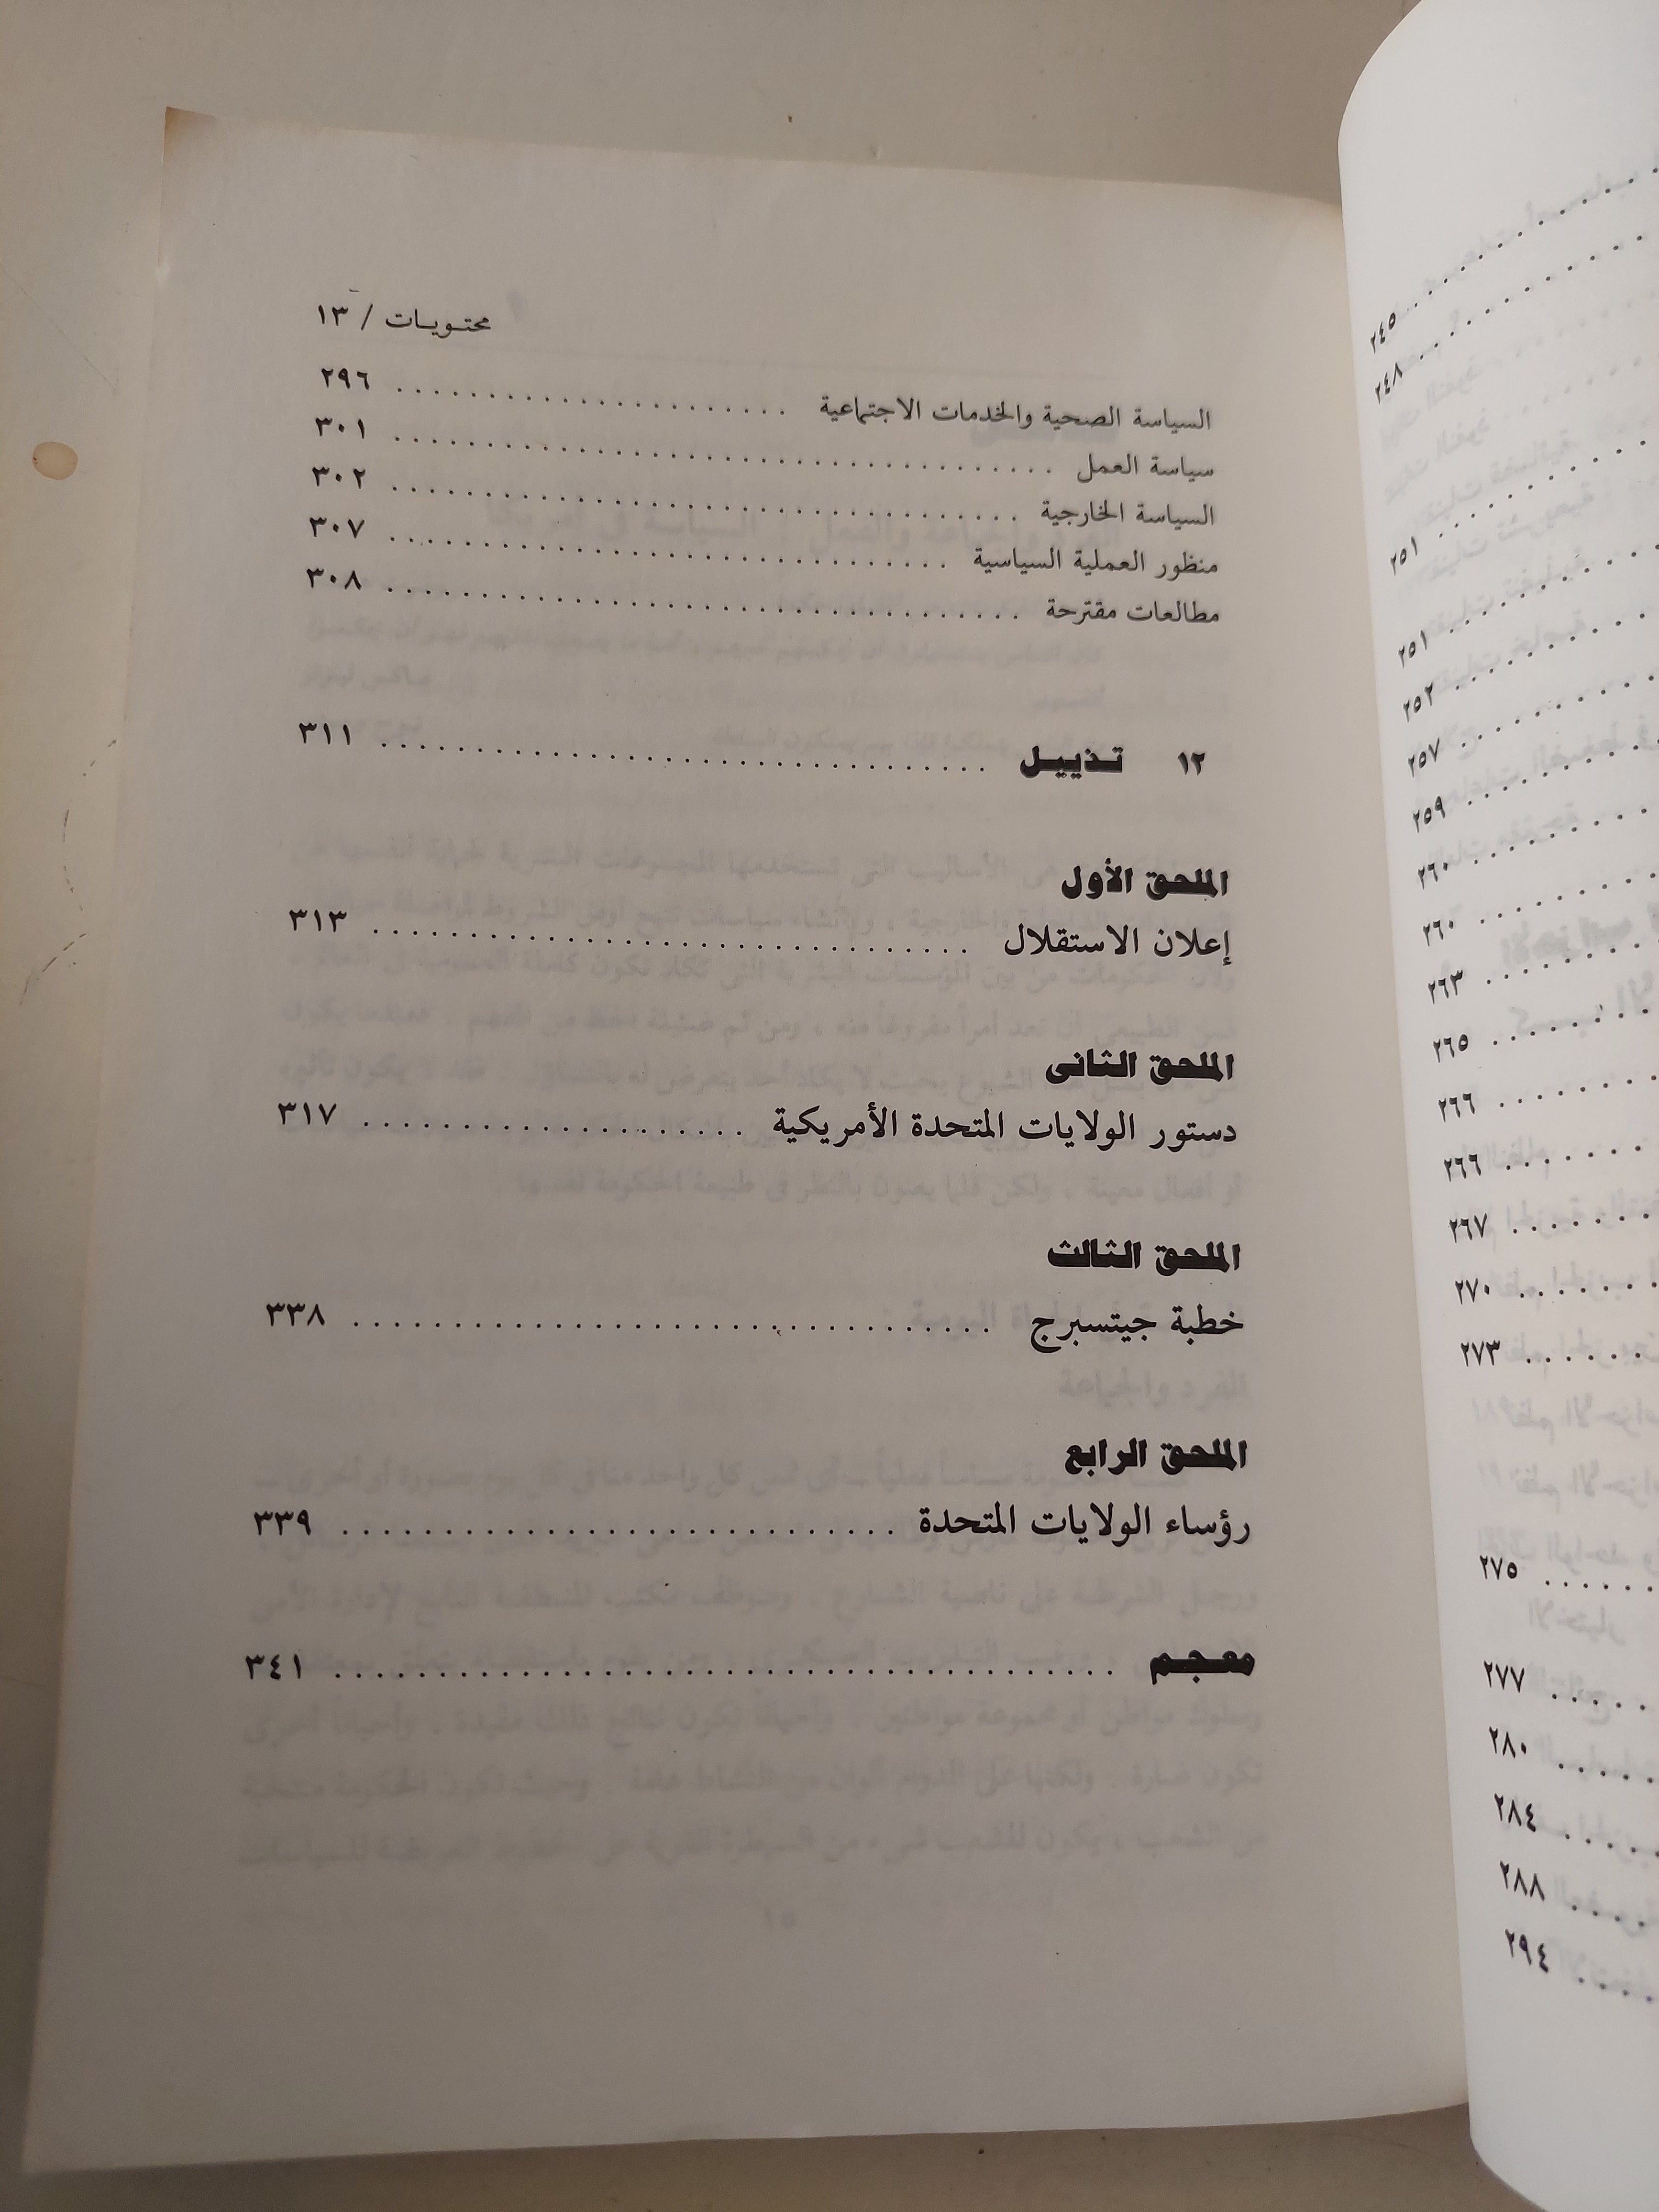 محتويات / ١٣
السياسة الصحية والخدمات الاجتماعية . . . . . . . . . . . . . . . . . . . . . . ٢٩٦
سياسة العمل . . . . . . . . . . . . . . . . . . . . . . . . . . . . . . . . . . . . . ٣٠١
السياسة الخارجية . . . . . . . . . . . . . . . . . . . . . . . . . . . . . . . . . . . ٣٠٢
منظور العملية السياسية . . . . . . . . . . . . . . . . . . . . . . . . . . . . . . . ٣٠٧
مطالعات مقترحة . . . . . . . . . . . . . . . . . . . . . . . . . . . . . . . . . . . ٣٠٨
١٢ تـذييـل . . . . . . . . . . . . . . . . . . . . . . . . . . . . . . . . ٣١١
الملحق الأول
إعلان الاستقلال . . . . . . . . . . . . . . . . . . . . . . . . . . . . . . . ٣١٣
الملحق الثانى
دستور الولايات المتحدة الأمريكية . . . . . . . . . . . . . . . . . . . . ٣١٧
الملحق الثالث
خطبة جيتسبرج . . . . . . . . . . . . . . . . . . . . . . . . . . . . . . . . ٣٣٨
الملحق الرابع
رؤساء الولايات المتحدة . . . . . . . . . . . . . . . . . . . . . . . . . . . . ٣٣٩
معـجـم . . . . . . . . . . . . . . . . . . . . . . . . . . . . . . . . . . . . . . ٣٤١
٢٤٥
٢٤٨
٢٥١
٢٥١
٢٥٢
٢٥٧
٢٥٩
٢٦٠
٢٦٠
٢٦٣
٢٦٥
٢٦٦
٢٦٦
٢٦٧
٢٧٠
٢٧٣
٢٧٥
٢٧٧
٢٨٠
٢٨٤
٢٨٨
٢٩٤